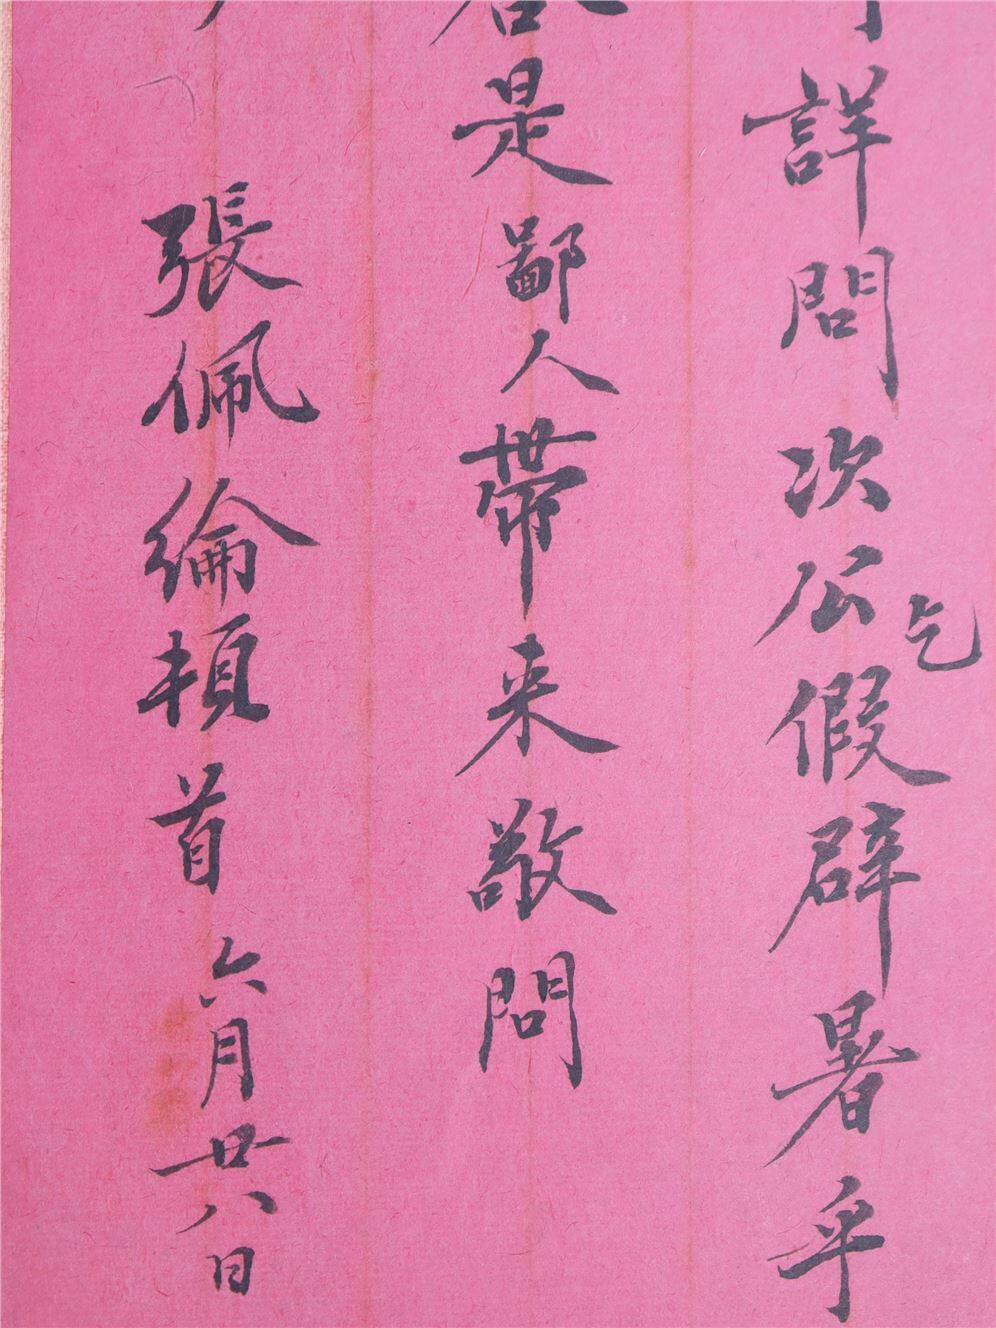 詳問次公乞假辟暑乎
是鄙人帶来敬問
張佩綸頓首六月廿八日